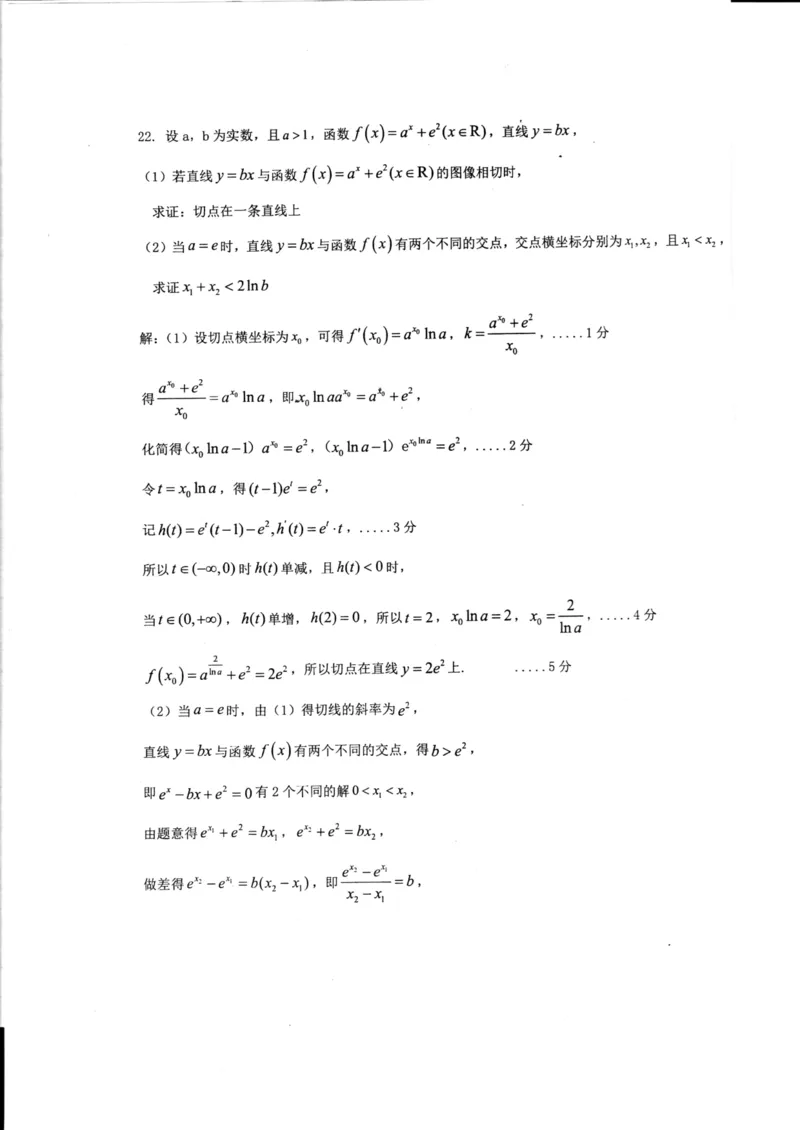 22. 设a，b为实数，且a>1，函数f(x)=aˣ+e²(x∈R)，直线y=bx，
（1）若直线y=bx与函数f(x)=aˣ+e²(x∈R)的图像相切时，
求证：切点在一条直线上
（2）当a=e时，直线y=bx与函数f(x)有两个不同的交点，交点横坐标分别为x₁,x₂，且x₁<x₂，
求证x₁+x₂<2lnb
解：（1）设切点横坐标为x₀，可得f′(x₀)=a^{x₀}lna，k=\frac{a^{x₀}+e²}{x₀}，.....1分
得\frac{a^{x₀}+e²}{x₀}=a^{x₀}lna，即x₀lnaa^{x₀}=a^{x₀}+e²，
化简得(x₀lna-1）a^{x₀}=e²，(x₀lna-1）e^{x₀lna}=e²，.....2分
令t=x₀lna，得(t-1)eᵗ=e²，
记h(t)=eᵗ(t-1)-e²,h′(t)=eᵗ·t，.....3分
所以t∈(-∞,0)时h(t)单减，且h(t)<0时，
当t∈(0,+∞)，h(t)单增，h(2)=0，所以t=2，x₀lna=2，x₀=\frac{2}{lna}，.....4分
f(x₀)=a^{\frac{2}{lna}}+e²=2e²，所以切点在直线y=2e²上. .....5分
（2）当a=e时，由（1）得切线的斜率为e²，
直线y=bx与函数f(x)有两个不同的交点，得b>e²，
即eˣ-bx+e²=0有2个不同的解0<x₁<x₂，
由题意得e^{x₁}+e²=bx₁，e^{x₂}+e²=bx₂，
做差得e^{x₂}-e^{x₁}=b(x₂-x₁)，即\frac{e^{x₂}-e^{x₁}}{x₂-x₁}=b，